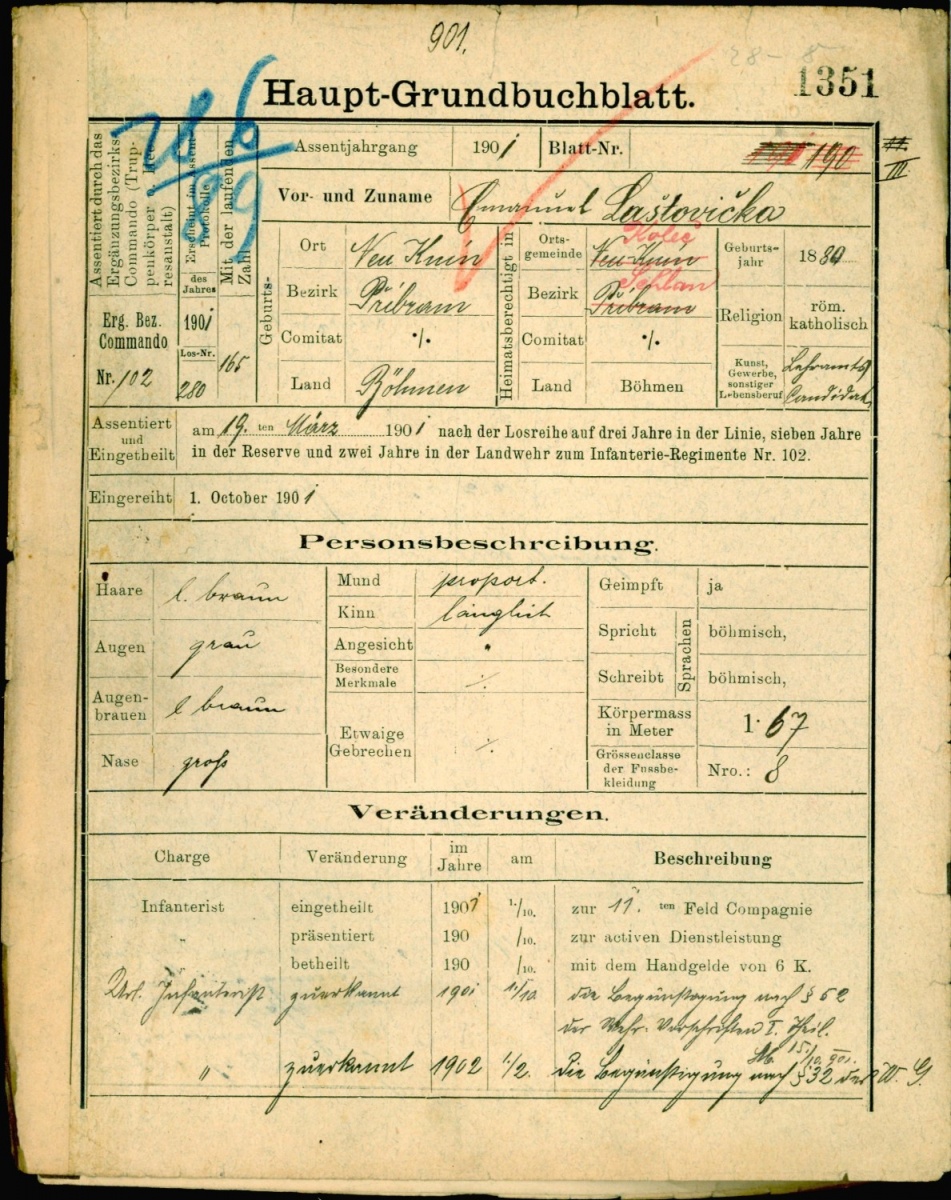 901.
1351
Haupt-Grundbuchblatt.
Assentiert durch das Ergänzungsbezirks-Commando (Truppenkörper o. Heeresanstalt)
Erscheint im Assent Protokolle
des Jahres
Mit der laufenden Zahl
Erg. Bez. Commando
Nr. 102
1901
Los-Nr.
280
165
Assentjahrgang 1901 Blatt-Nr. 190
III
Vor- und Zuname Emanuel Laštovička
Geburts-
Ort Neu Knin
Bezirk Přibram
Comitat ·/·
Land Böhmen
Heimatsberechtigt in
Ortsgemeinde Neu Knin Koleč
Bezirk Přibram Schlan
Comitat ·/·
Land Böhmen
Geburtsjahr 1880
Religion röm. katholisch
Kunst, Gewerbe, sonstiger Lebensberuf Lehramts Candidat
Assentiert und Eingetheilt
am 19. ten März 1901 nach der Losreihe auf drei Jahre in der Linie, sieben Jahre
in der Reserve und zwei Jahre in der Landwehr zum Infanterie-Regimente Nr. 102.
Eingereiht 1. October 1901
Personsbeschreibung.
Haare l. braun
Augen grau
Augenbrauen l braun
Nase groß
Mund proport.
Kinn länglich
Angesicht "
Besondere Merkmale ·/·
Etwaige Gebrechen ·/·
Geimpft ja
Spricht Sprachen böhmisch,
Schreibt böhmisch,
Körpermass in Meter 1·67
Grössenclasse der Fussbekleidung Nro.: 8
Veränderungen.
Charge Veränderung im Jahre am Beschreibung
Infanterist eingetheilt 1901 1./10. zur 11. ten Feld Compagnie
" präsentiert 190 /10. zur activen Dienstleistung
betheilt 190 /10. mit dem Handgelde von 6 K.
Infanterist zuerkannt 1901 1/10 die Begünstigung nach §
der Wehr. Vorschriften I. Theil.
15./10. 901.
" zuerkannt 1902 1./2. die Begünstigung nach § 32 des W. G.